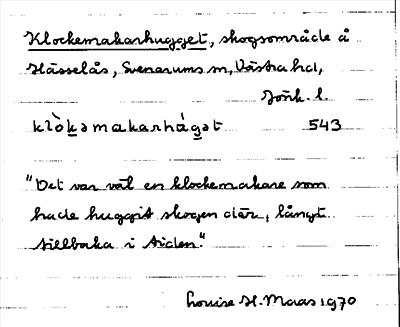 Klockemakarhugget, skogsområde å
Hässelås, Svenarums sn, Västra hd,
Jönk. l.
klò̱kəmakarhágət 543
"Det var väl en klockemakare som
hade huggit skogen där, långt
tillbaka i tiden."
Louise H. Maas 1970